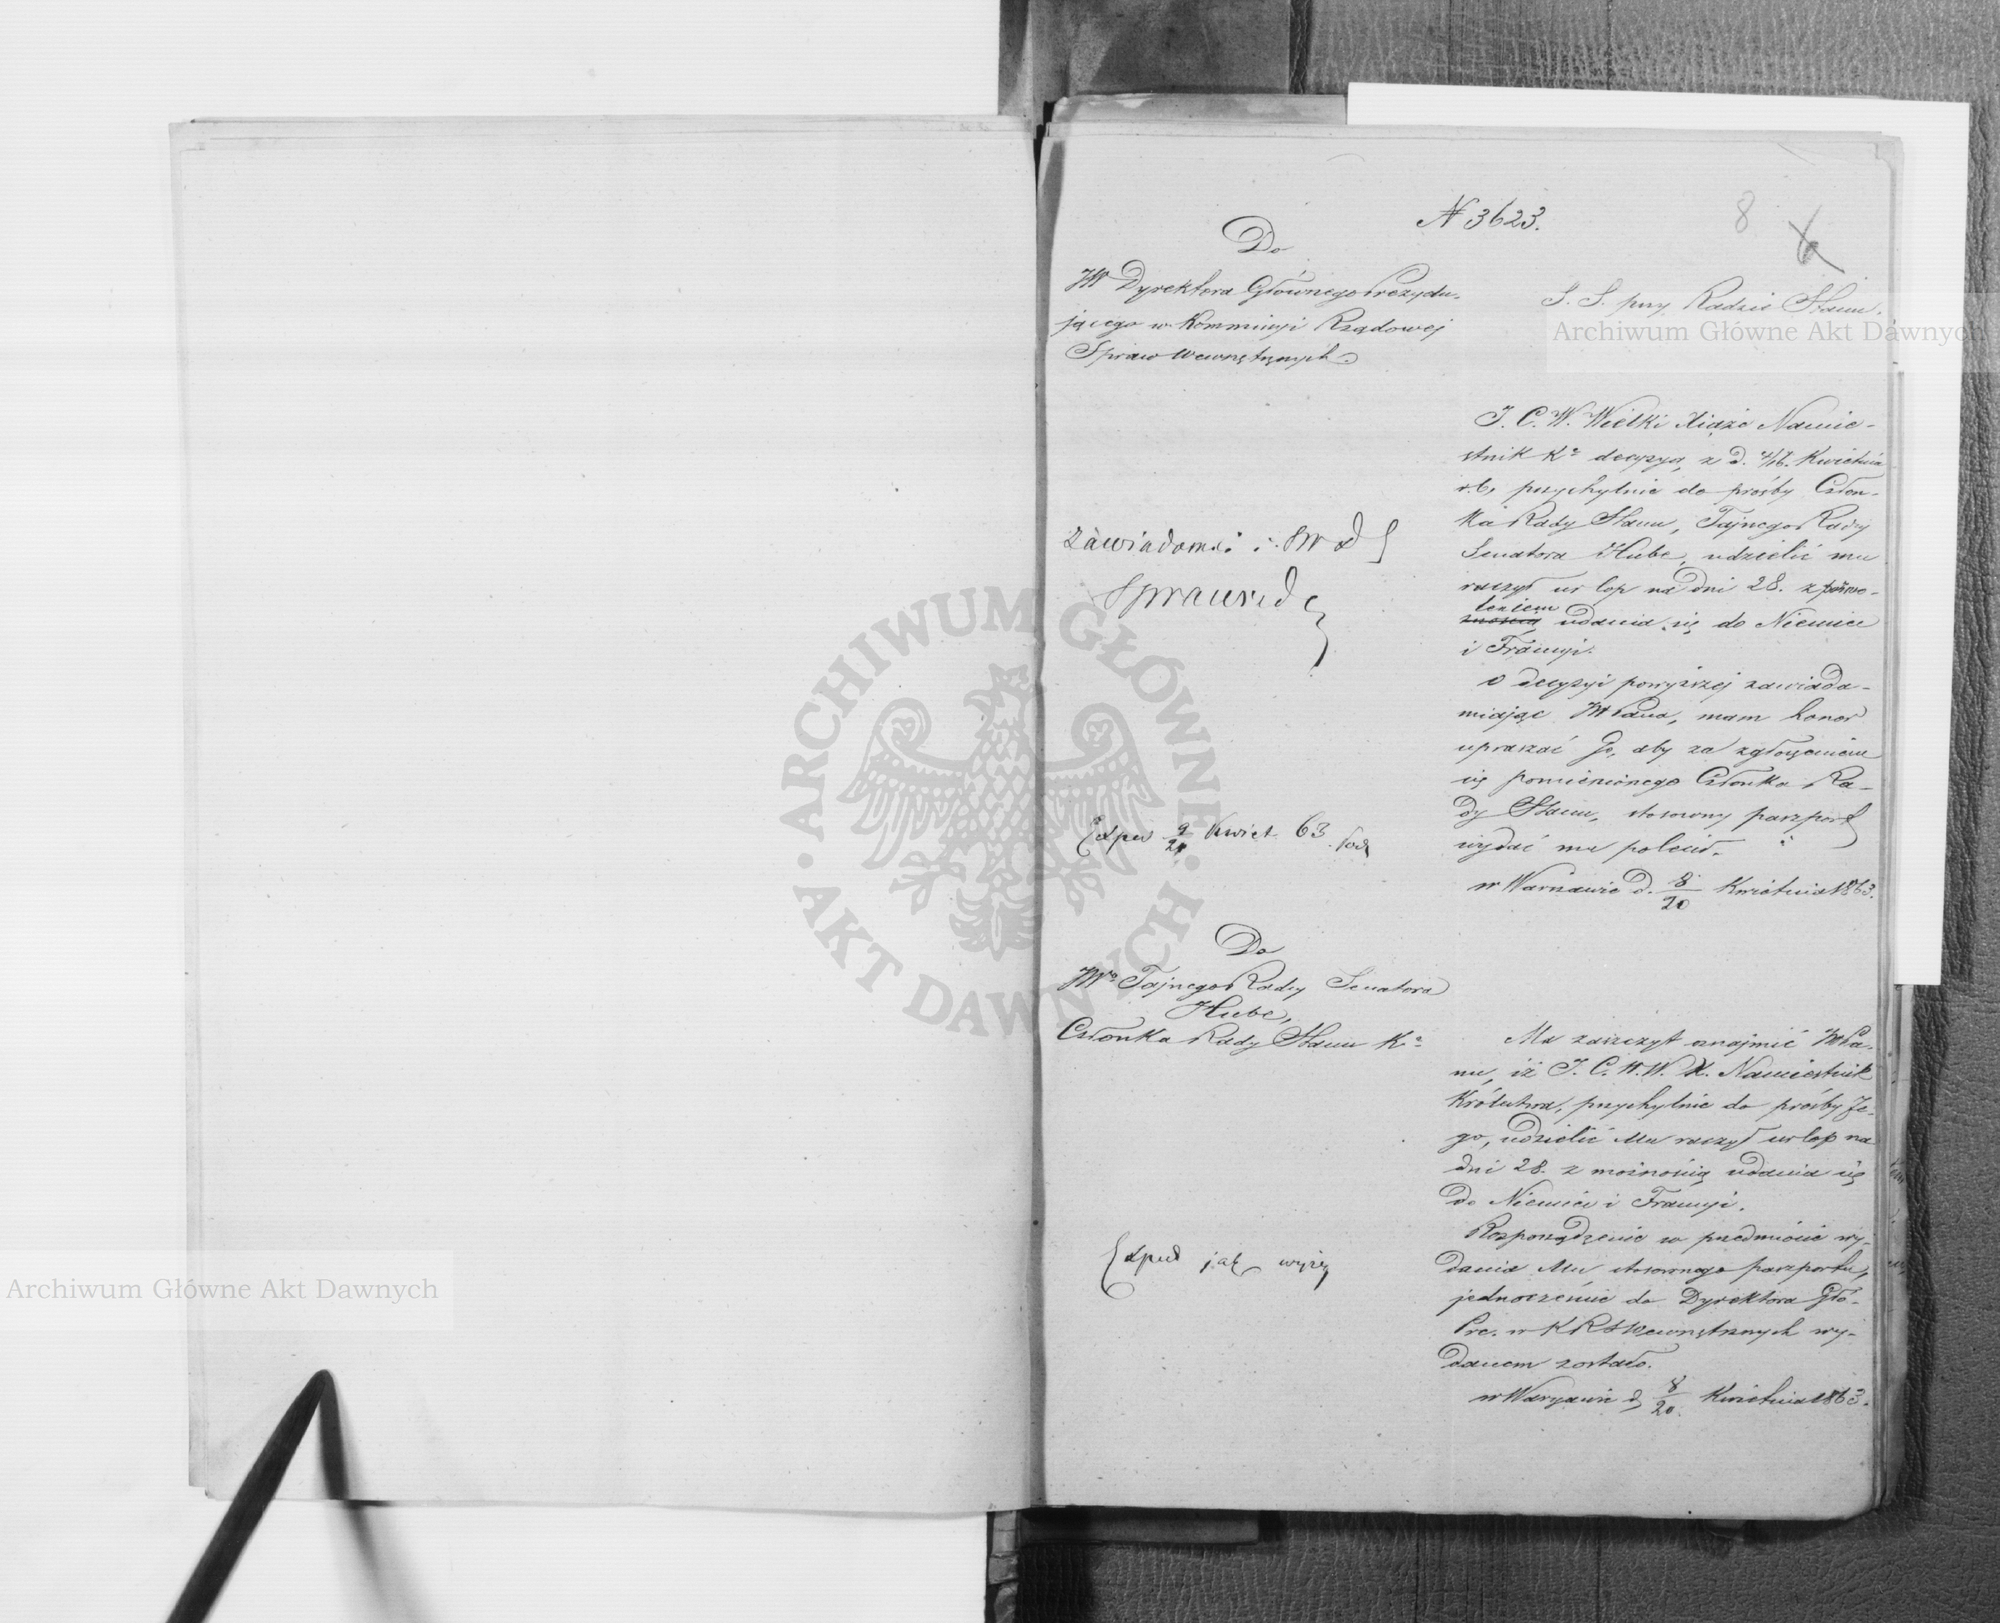 N 3623.
8
6
Do
JW Dyrektora Głównego Prezydu-
jącego w Kommissyi Rządowej
Spraw Wewnętrznych
S. S. przy Radzie Stanu.
J. C. W. Wielki Xiąże Namie-
stnik Kr decyzyą z d. 4/16. Kwietnia
r.b. przychylnie do prośby Człon-
ka Rady Stanu, Tajnego Radcy
Senatora Hube, udzielić mu
raczył urlop na dni 28. z pozwo-
leniem
udania się do Niemiec
i Francyi.
O decyzyi powyższej zawiada-
miając JW Pana, mam honor
upraszać Go, aby za zgłoszeniem
się pomienionego Członka Ra-
dy Stanu, stosowny paszport
wydać mu polecił.
w Warszawie d. 8/20 Kwietnia 1863.
Exped 9/21 Kwiet 63
Do
JWo Tajnego Radcy Senatora
Hube,
Członka Rady Stanu Kr
Ma zaszczyt oznajmić JW Pa-
nu, iż J. C. W. W. X. Namiestnik
Królestwa, przychylnie do prośby Je-
go, udzielić Mu raczył urlop na
dni 28. z możnością udania się
do Niemiec i Francyi.
Rozporządzenie w przedmiocie wy-
dania Mu stosownego paszportu,
jednocześnie do Dyrektora Głó-
Pre. w K R S Wewnętrznych wy-
danem zostało.
w Warszawie d 8/20. Kwietnia 1863.
Exped jak wyżej
Archiwum Główne Akt Dawnych
Archiwum Główne Akt Dawnych
ARCHIWUM GŁÓWNE · AKT DAWNYCH ·